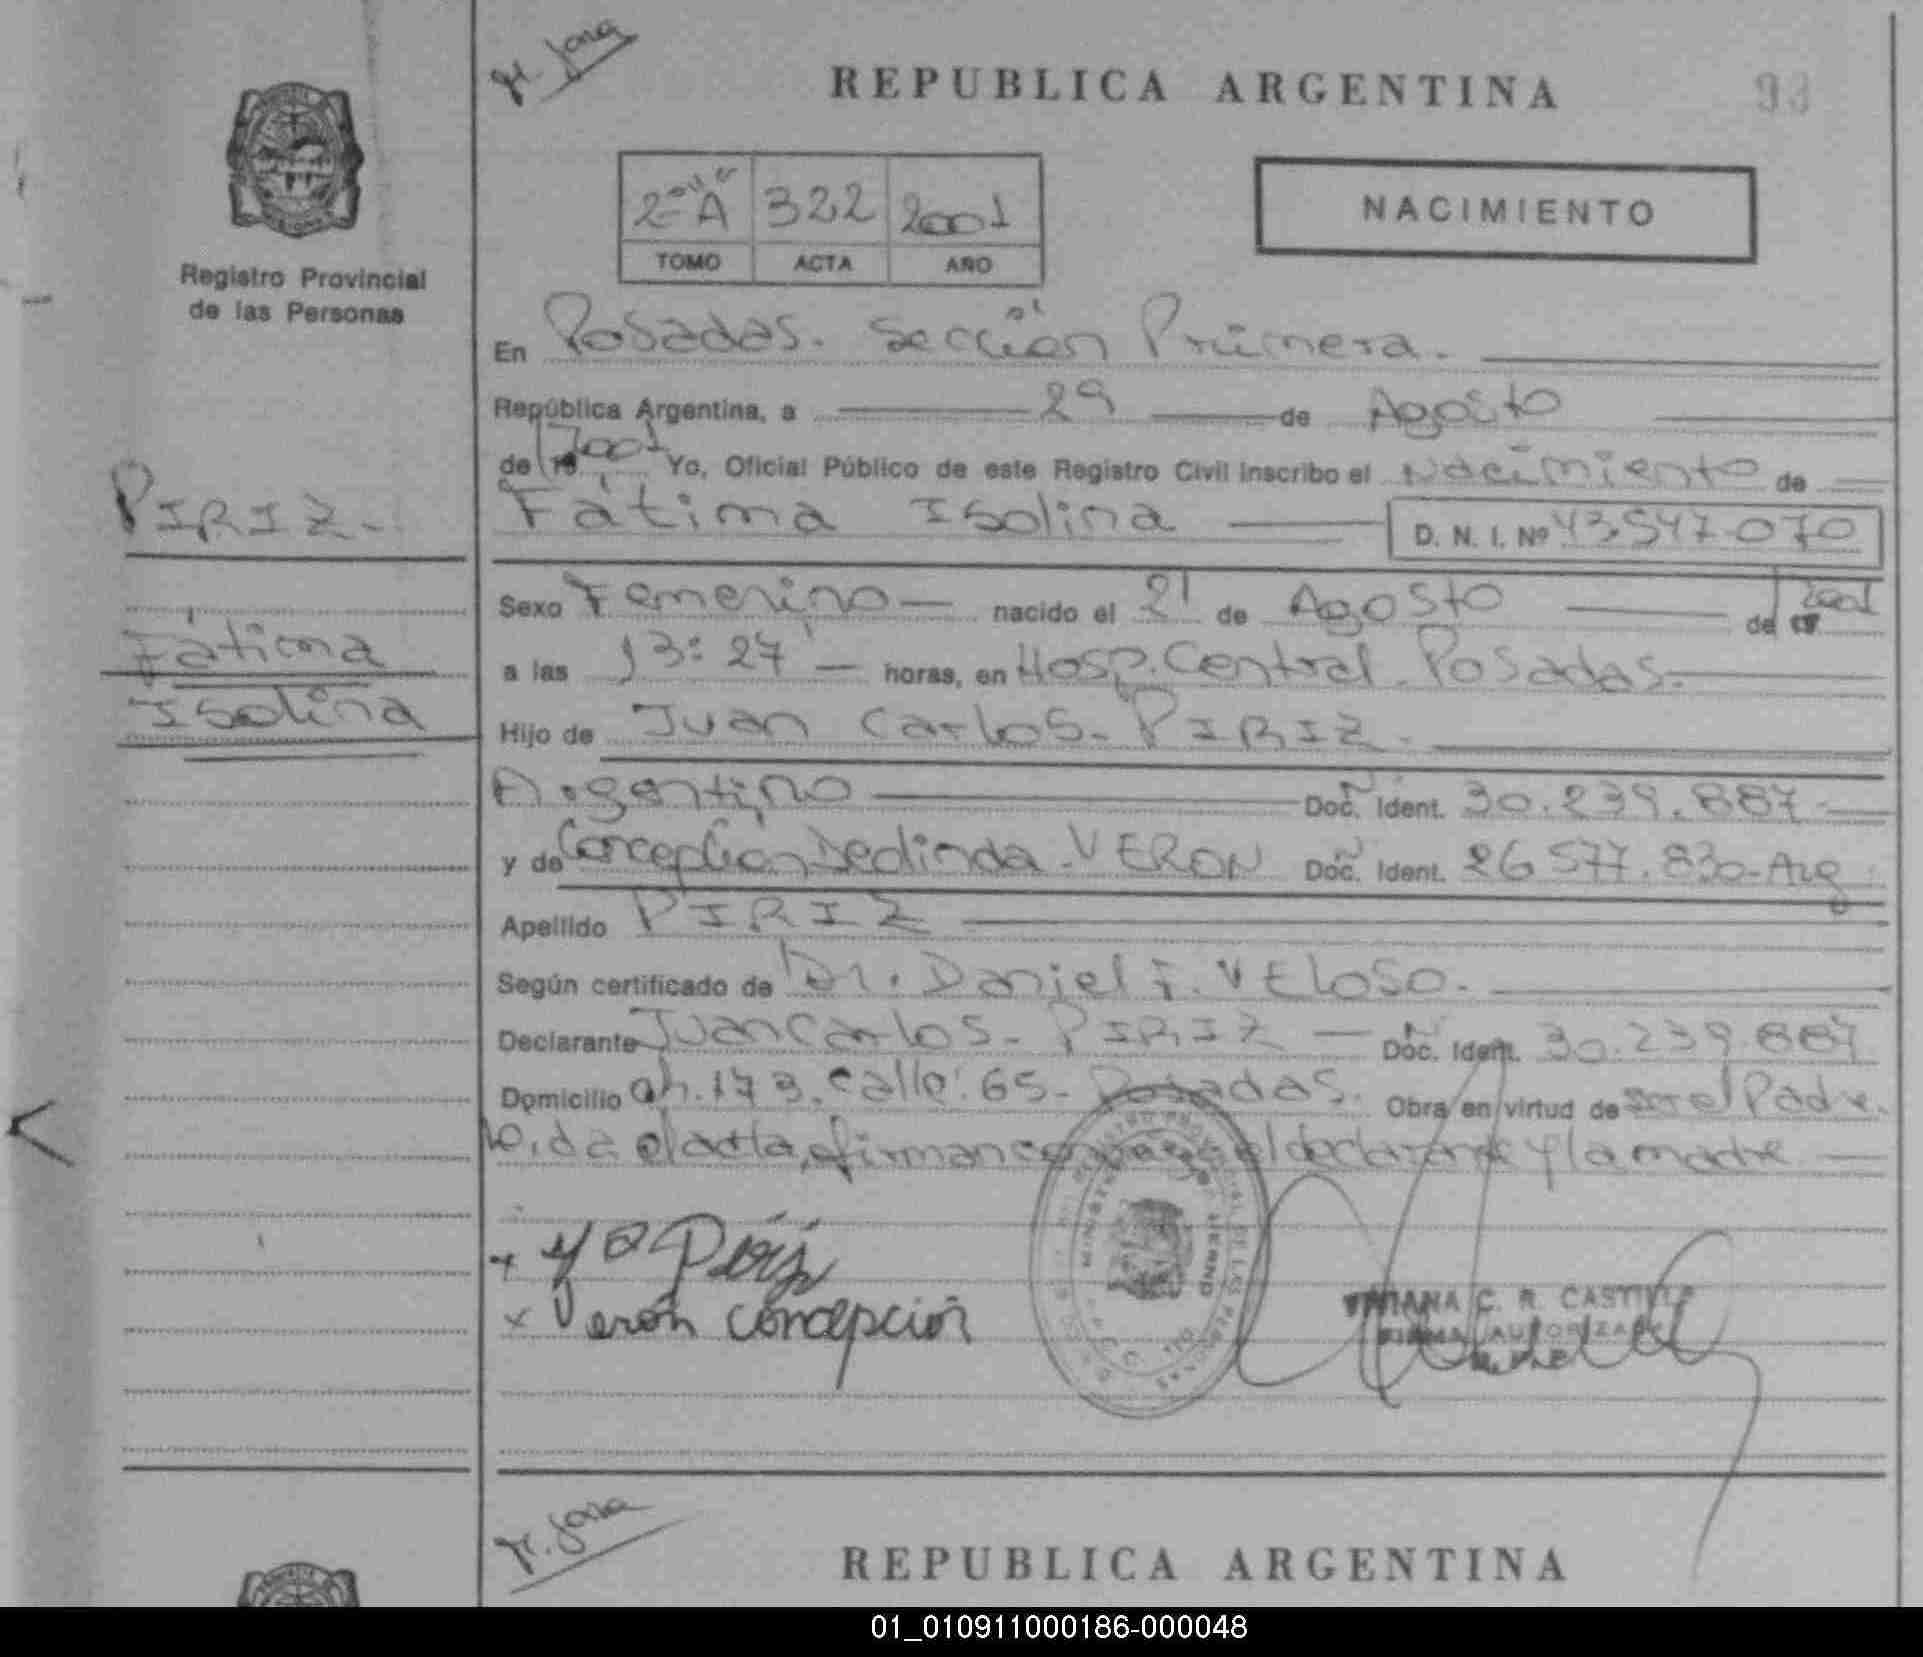 REPUBLICA ARGENTINA
93
Registro Provincial
de las Personas
2º "A" 322 2001
TOMO ACTA AÑO
NACIMIENTO
En Posadas. Sección Primera.
República Argentina, a 29 de Agosto
de 19 2001 Yo, Oficial Público de este Registro Civil inscribo el Nacimiento de
PIRIZ.-
Fátima Isolina D. N. I. Nº 43.547.070
Sexo Femenino nacido el 21 de Agosto de 2001
Fátima
Isolina
a las 13:27 horas, en Hosp. Central. Posadas.
Hijo de Juan Carlos. PIRIZ.
Argentino Doc. Ident. 30.239.887
y de Concepción Dedinda. VERON Doc. Ident. 26.577.830-Arg
Apellido PIRIZ
Según certificado de Dr. Daniel F. VELOSO.
Declarante Juan Carlos. PIRIZ Doc. Ident. 30.239.887
Domicilio Ch. 173. calle: 65. Posadas. Obra en virtud de ser el Padre.
Leida el acta, firman conmigo el declarante y la madre
Piriz
x Verón concepción
C. R. CASTILLO
FIRMA AUTORIZADA
REPUBLICA ARGENTINA
01_010911000186-000048